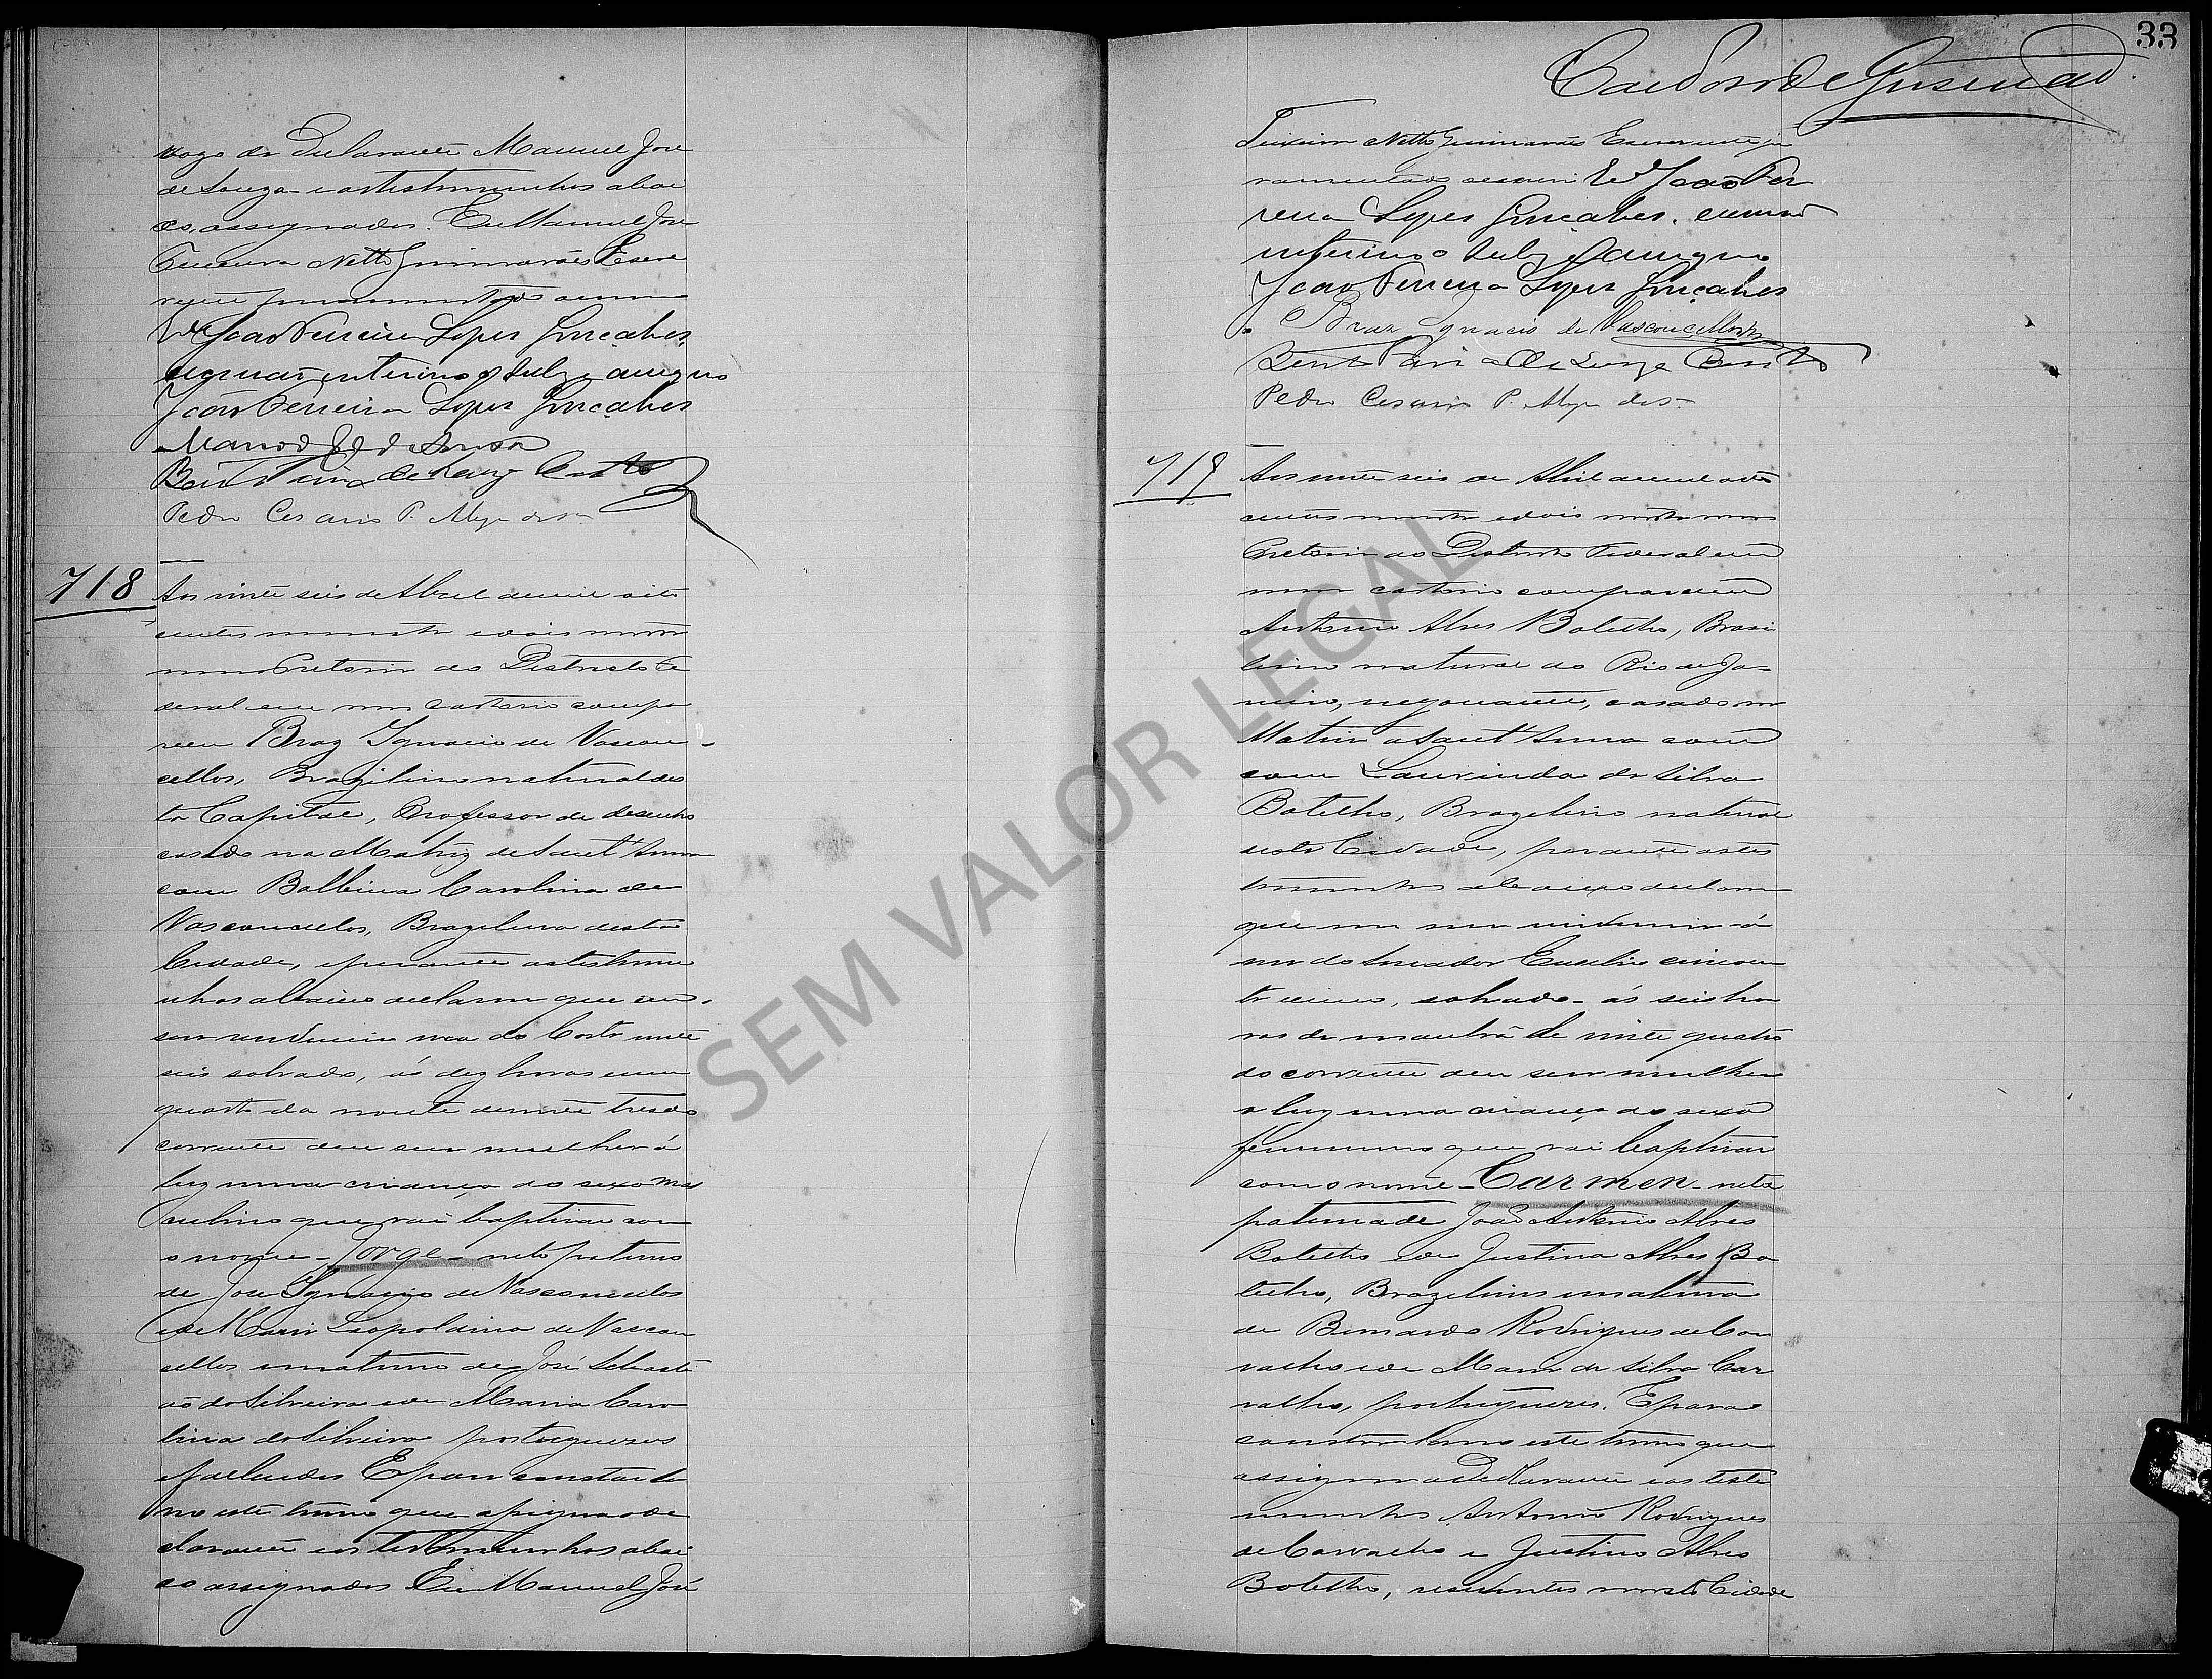 rogo do Declarante Manuel José
de Souza e as testemunhas abai
xo assignados. Eu Manuel José
Teixeira Netto Guimarães Escre
vente juramentado
Eu João Ferreira Lopes Gonçalves,
escrivão interino o subs. e assigno
João Ferreira Lopes Gonçalves
Bento de Souza Couto
Pedro Cesario P.
718
Aos vinte seis de Abril de mil oito
centos noventa e dois nesta
Pretoria do Districto Fe
deral em meu cartorio compa
receu Braz Ignacio de Vascon-
cellos, Brazileiro natural des
ta Capital, Professor de desenho
casado na Matriz de Sant'Anna
com Balbina Carolina de
Vasconcellos, Brazileira desta
Cidade, e perante as testemu
nhas abaixo declarou que em
sua residencia rua do Costa vinte
seis sobrado, ás dez horas e um
quarto da noute de vinte tres do
corrente deu sua mulher á
luz uma criança do sexo mas
culino que vai baptisar com
o nome - Jorge - neto paterno
de José Ignacio de Vasconcellos
e de Maria Leopoldina de Vascon
cellos e materno de José Sebasti
ão da Silveira e de Maria Caro
lina da Silveira portuguezes
e fallecidos E para constar la
vro este termo que assigna o de
clarante e as testemunhas abai
xo assignados Eu Manuel José
33
Cardoso de Gusmão
Teixeira Netto Guimarães Escrevente ju
ramentado escrevi Eu João Fer
reira Lopes Gonçalves, escrivão
interino o subs. e assigno
João Ferreira Lopes Gonçalves
Braz Ignacio de Vasconcellos
Bento de Souza Couto
Pedro Cesario P.
719
Aos vinte seis de Abril de mil oito
centos noventa e dois nesta
Pretoria do Districto Federal em
meu cartorio compareceu
Antonio Alves Botelho, Brasi
leiro natural do Rio de Ja-
neiro, negociante, casado na
Matriz de Sant'Anna com
com Laurinda da Silva
Botelho, Brazileira natural
desta Cidade, perante as tes
temunhas abaixo declarou
que em sua residencia á
rua do Senador Euzebio cincoen
ta e cinco, sobrado - ás seis ho
ras da manhã de vinte quatro
do corrente deu sua mulher
a luz uma criança do sexo
feminino que vai baptisar
com o nome - Carmen - neta
paterna de João Antonio Alves
Botelho e de Justina Alves Bo
telho, Brazileiros e materna
de Bernardo Rodrigues de Car
valho e de Maria da Silva Car
valho, portuguezes. E para
constar lavro este termo que
assigna o Declarante e as teste
munhas Antonio Rodrigues
de Carvalho e Justino Alves
Botelho, residentes nesta Cidade
SEM VALOR LEGAL